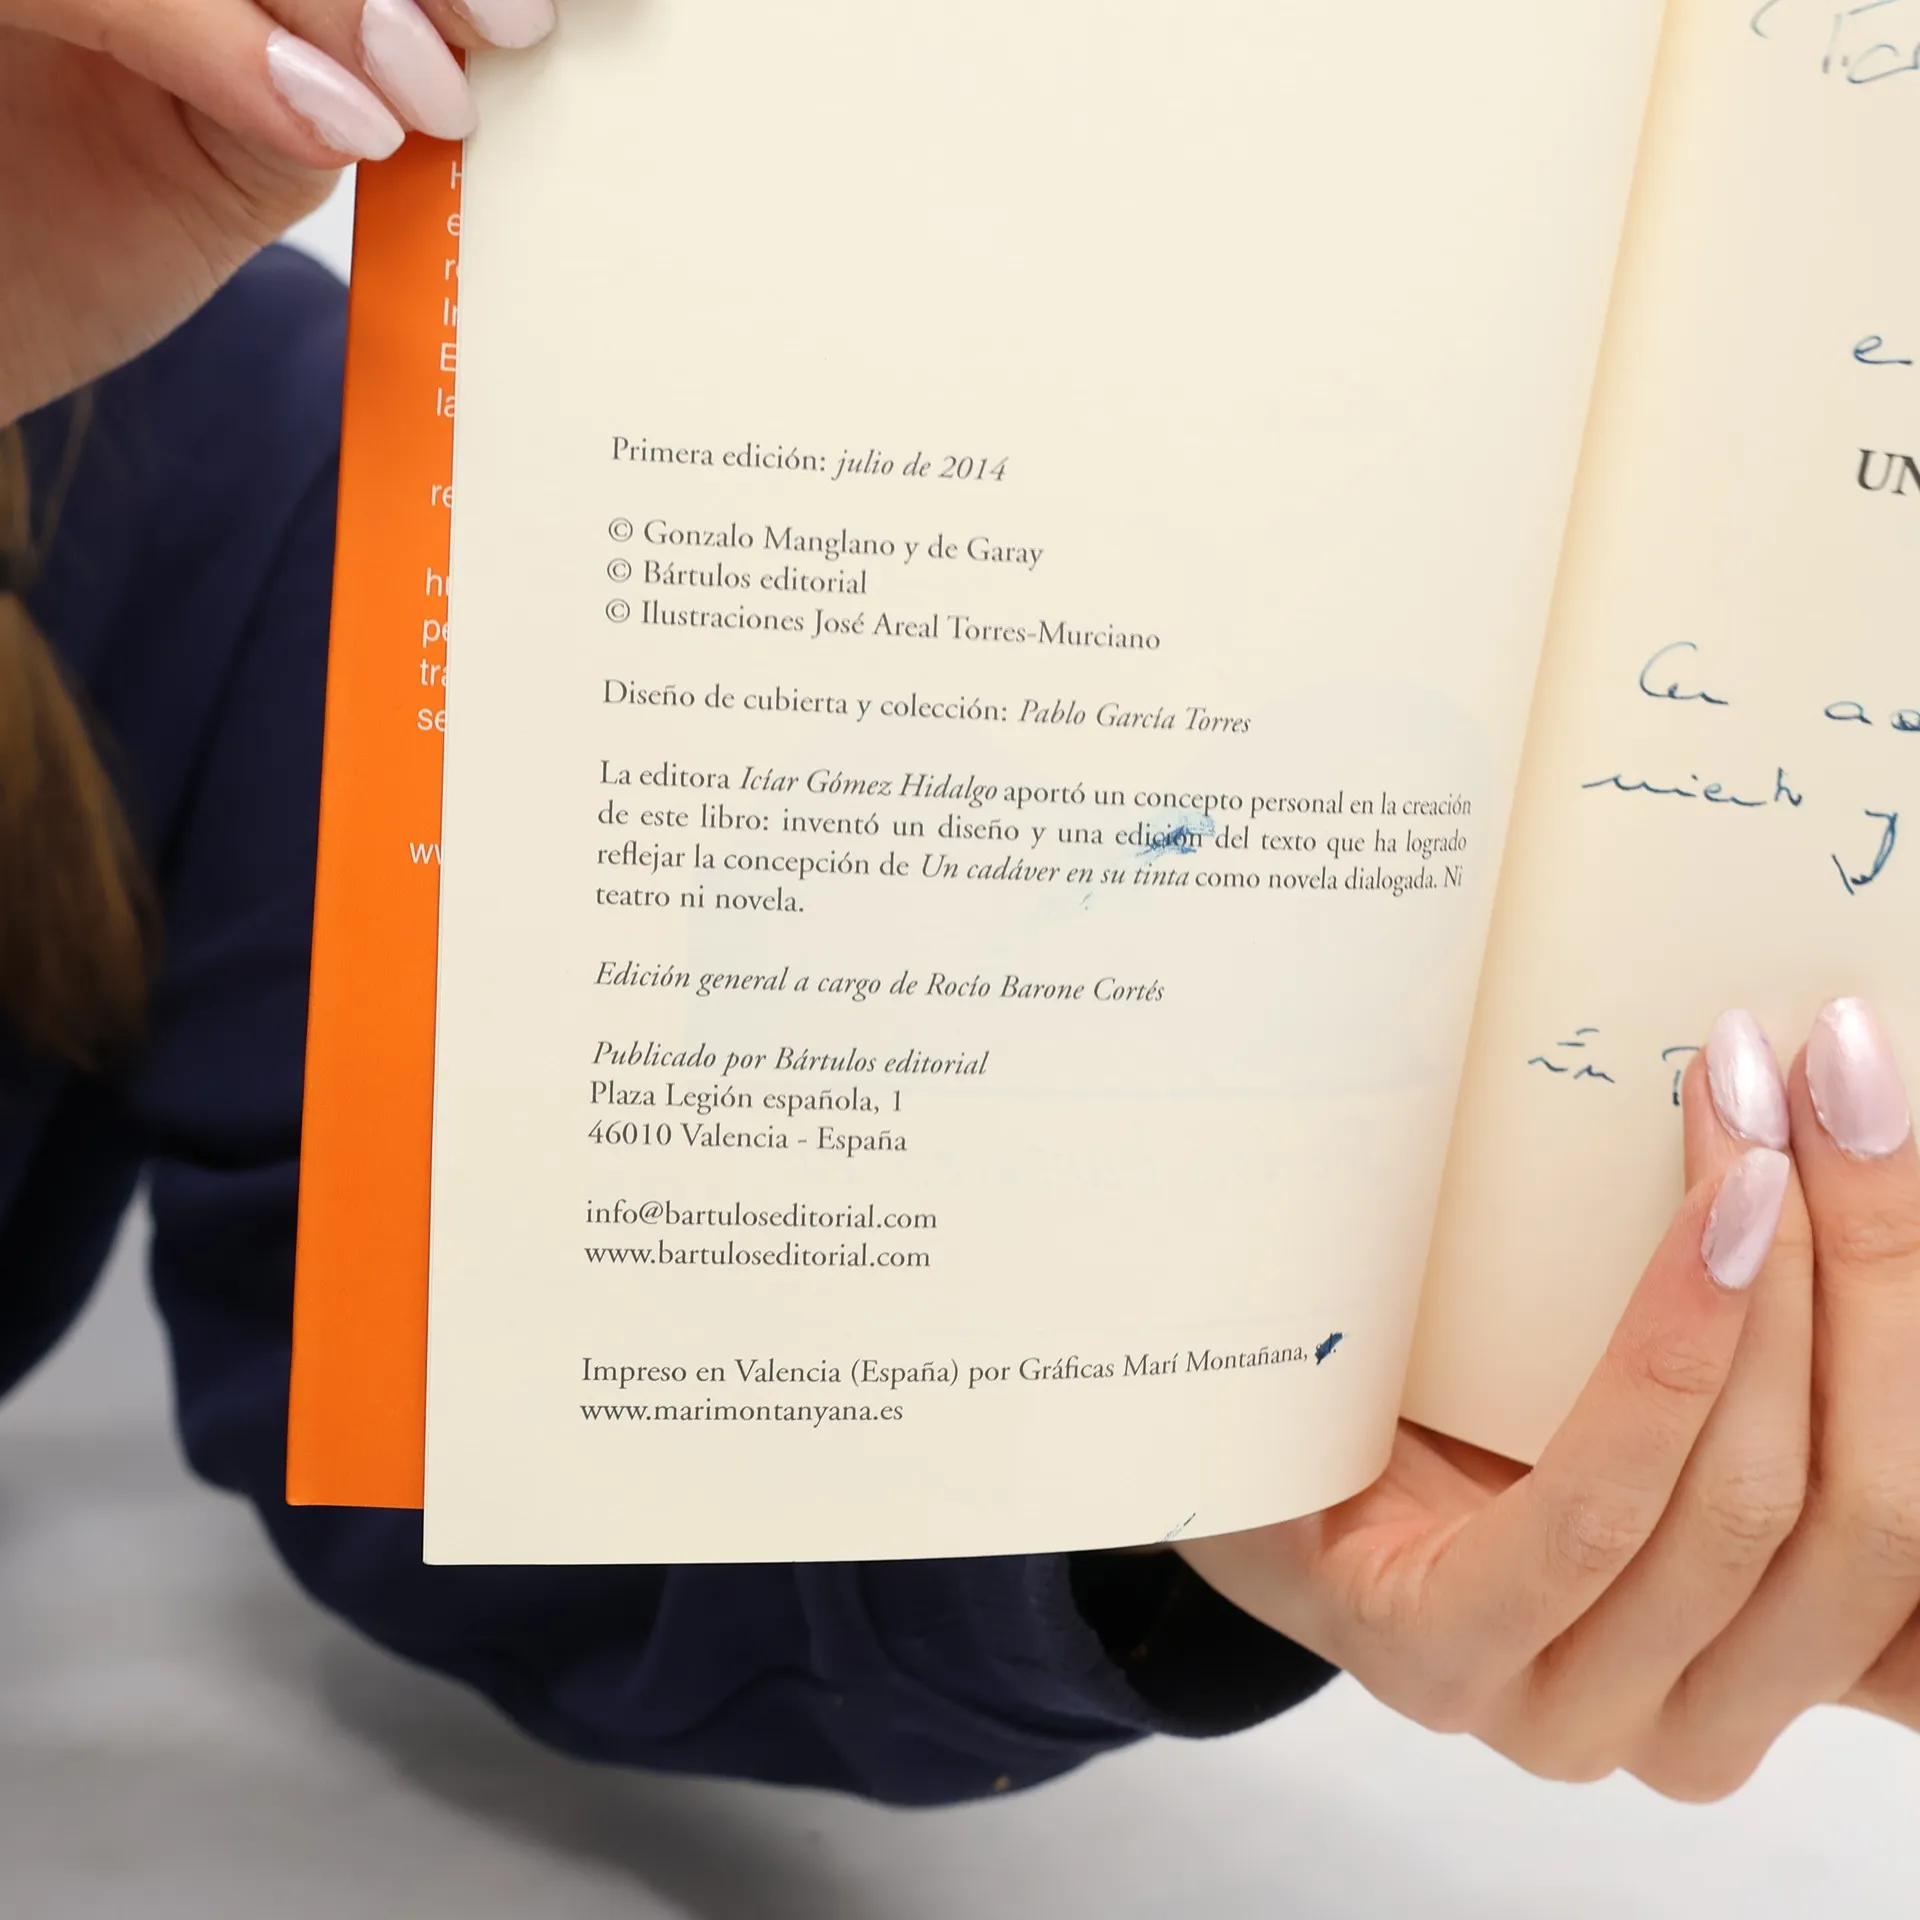 Primera edición: julio de 2014
© Gonzalo Manglano y de Garay
© Bártulos editorial
© Ilustraciones José Areal Torres-Murciano
Diseño de cubierta y colección: Pablo García Torres
La editora Icíar Gómez Hidalgo aportó un concepto personal en la creación
de este libro: inventó un diseño y una edición del texto que ha logrado
reflejar la concepción de Un cadáver en su tinta como novela dialogada. Ni
teatro ni novela.
Edición general a cargo de Rocío Barone Cortés
Publicado por Bártulos editorial
Plaza Legión española, 1
46010 Valencia - España
info@bartuloseditorial.com
www.bartuloseditorial.com
Impreso en Valencia (España) por Gráficas Marí Montañana,
www.marimontanyana.es
UN